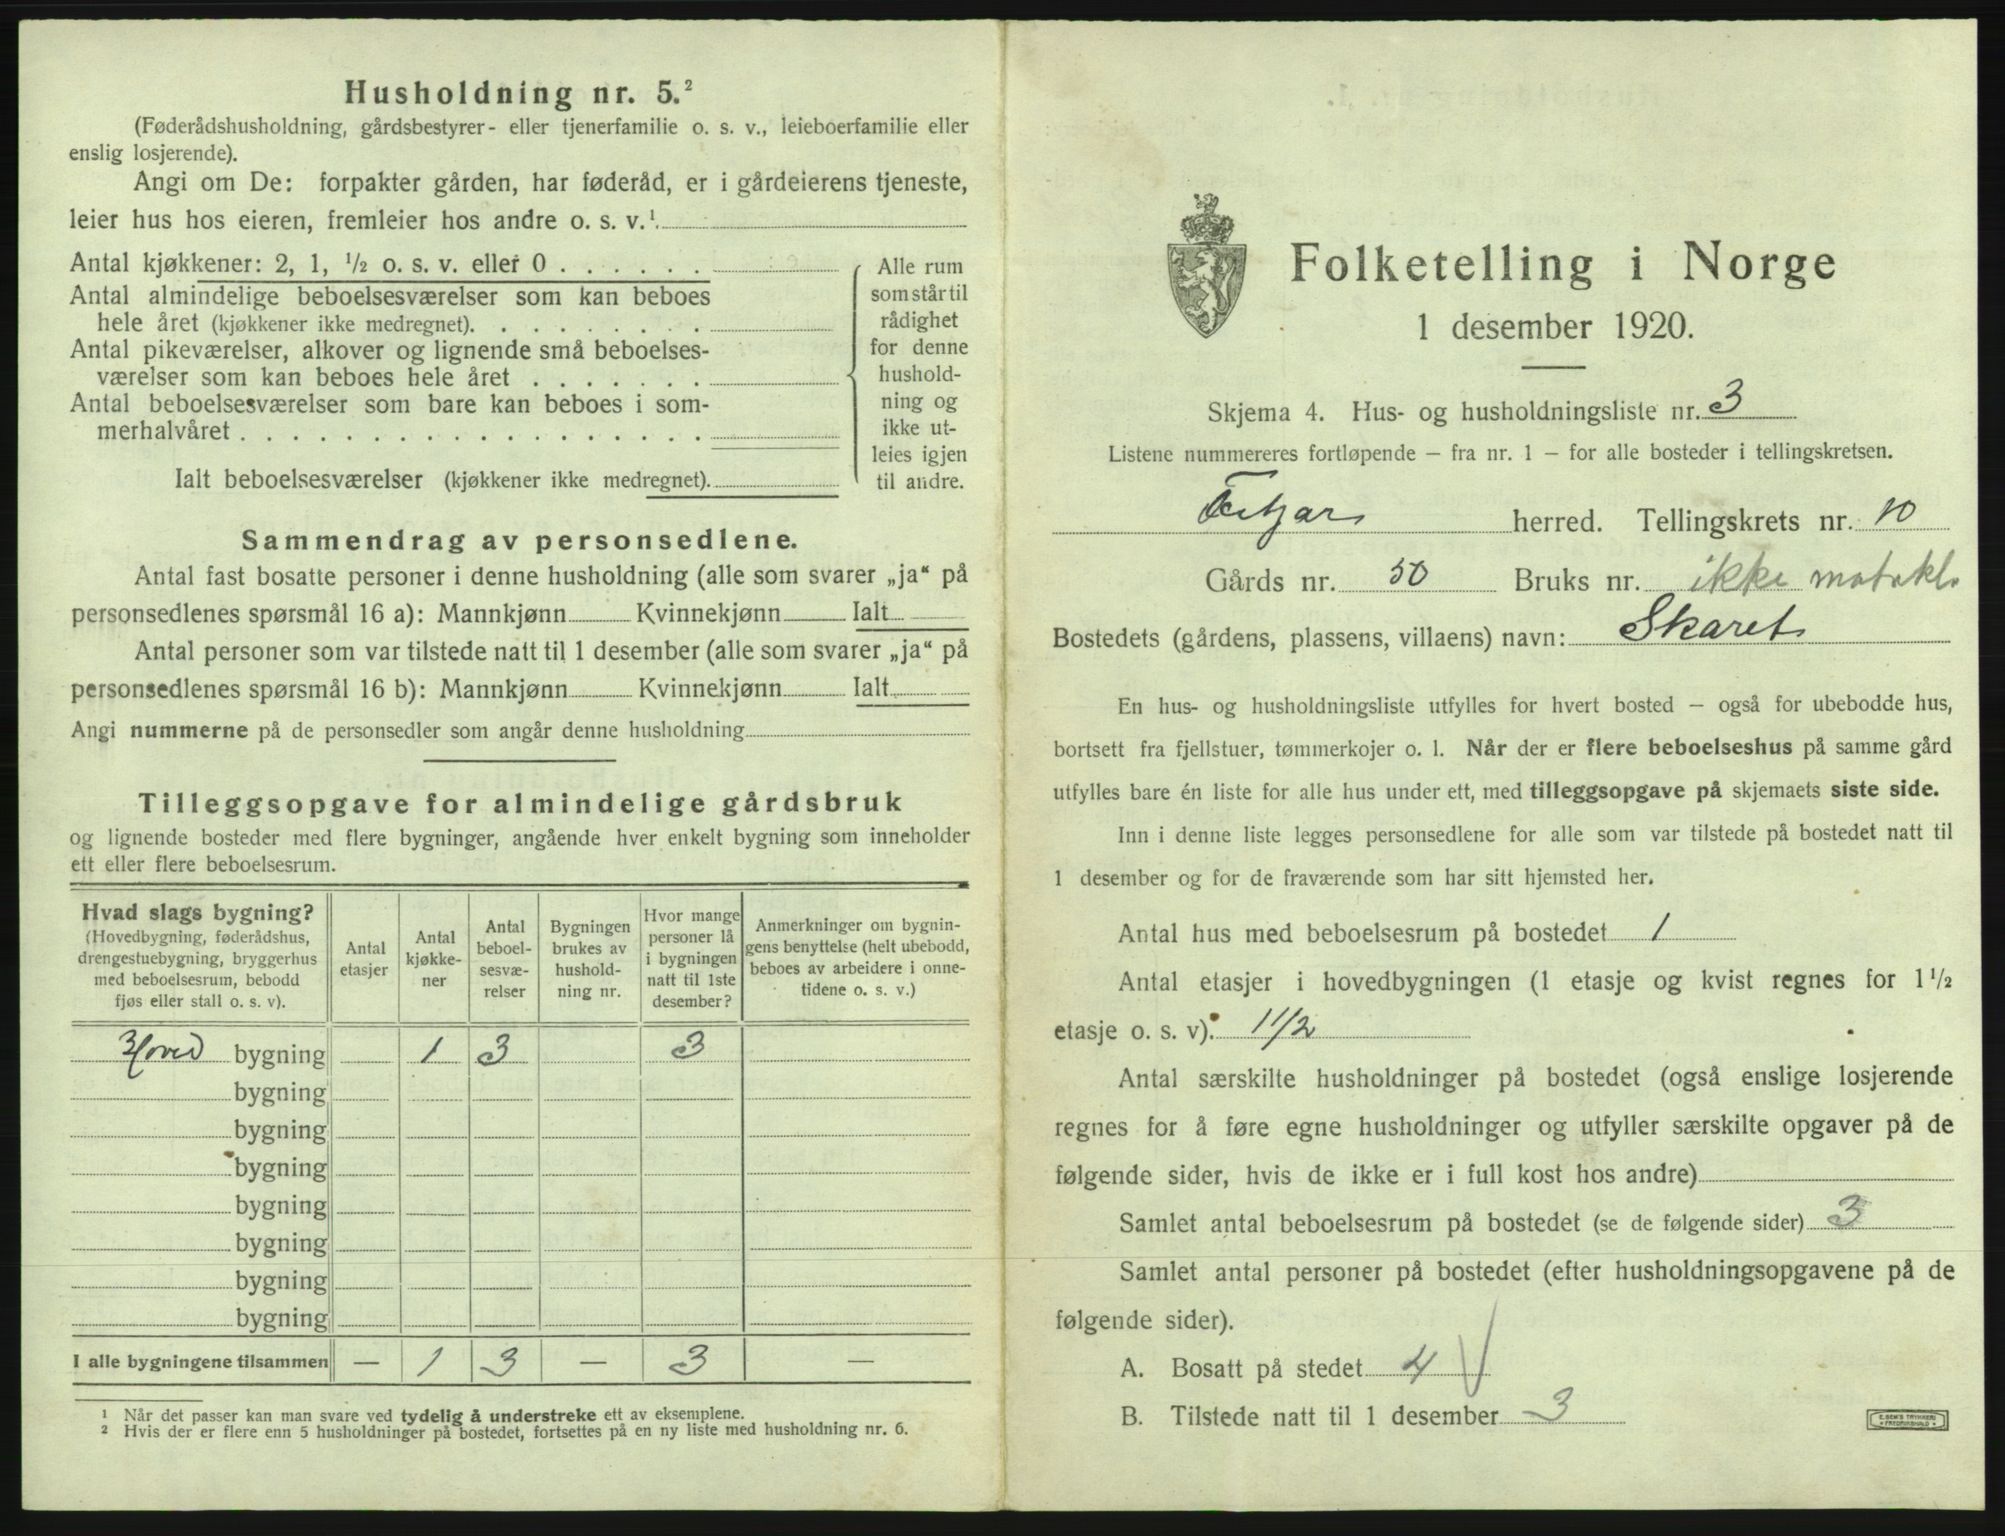 Husholdning nr. 5.²
(Føderådshusholdning, gårdsbestyrer- eller tjenerfamilie o. s. v., leieboerfamilie eller
enslig losjerende).
Angi om De: forpakter gården, har føderåd, er i gårdeierens tjeneste,
leier hus hos eieren, fremleier hos andre o. s. v.¹
Antal kjøkkener: 2, 1, ½ o. s. v. eller 0 . . . . . .
Antal almindelige beboelsesværelser som kan beboes
hele året (kjøkkener ikke medregnet). . . . . . . . .
Antal pikeværelser, alkover og lignende små beboelses-
værelser som kan beboes hele året . . . . . . .
Antal beboelsesværelser som bare kan beboes i som-
merhalvåret . . . . . . . . . . . . . . . . . .
Ialt beboelsesværelser (kjøkkener ikke medregnet).
Alle rum
som står til
rådighet
for denne
hushold-
ning og
ikke ut-
leies igjen
til andre.
Sammendrag av personsedlene.
Antal fast bosatte personer i denne husholdning (alle som svarer „ja“ på
personsedlenes spørsmål 16 a): Mannkjønn Kvinnekjønn Ialt
Antal personer som var tilstede natt til 1 desember (alle som svarer „ja“ på
personsedlenes spørsmål 16 b): Mannkjønn Kvinnekjønn Ialt
Angi nummerne på de personsedler som angår denne husholdning
Tilleggsopgave for almindelige gårdsbruk
og lignende bosteder med flere bygninger, angående hver enkelt bygning som inneholder
ett eller flere beboelsesrum.
Hvad slags bygning?
(Hovedbygning, føderådshus,
drengestuebygning, bryggerhus
med beboelsesrum, bebodd
fjøs eller stall o. s. v).
Antal
etasjer
Antal
kjøkke-
ner
Antal
beboel-
sesvæ-
relser
Bygningen
brukes av
hushold-
ning nr.
Hvor mange
personer lå
i bygningen
natt til 1ste
desember?
Anmerkninger om bygnin-
gens benyttelse (helt ubebodd,
beboes av arbeidere i onne-
tidene o. s. v.)
Hoved bygning 1 3 3
bygning
bygning
bygning
bygning
bygning
bygning
bygning
I alle bygningene tilsammen — 1 3 — 3 —
¹ Når det passer kan man svare ved tydelig å understreke ett av eksemplene.
² Hvis der er flere enn 5 husholdninger på bostedet, fortsettes på en ny liste med husholdning nr. 6.
Folketelling i Norge
1 desember 1920.
Skjema 4. Hus- og husholdningsliste nr. 3
Listene nummereres fortløpende – fra nr. 1 – for alle bosteder i tellingskretsen.
Fitjar herred. Tellingskrets nr. 10
Gårds nr. 50 Bruks nr. ikke matrkl.
Bostedets (gårdens, plassens, villaens) navn: Skaret
En hus- og husholdningsliste utfylles for hvert bosted – også for ubebodde hus,
bortsett fra fjellstuer, tømmerkojer o. l. Når der er flere beboelseshus på samme gård
utfylles bare én liste for alle hus under ett, med tilleggsopgave på skjemaets siste side.
Inn i denne liste legges personsedlene for alle som var tilstede på bostedet natt til
1 desember og for de fraværende som har sitt hjemsted her.
Antal hus med beboelsesrum på bostedet 1
Antal etasjer i hovedbygningen (1 etasje og kvist regnes for 1 ½
etasje o. s. v). 1 1/2
Antal særskilte husholdninger på bostedet (også enslige losjerende
regnes for å føre egne husholdninger og utfyller særskilte opgaver på de
følgende sider, hvis de ikke er i full kost hos andre)
Samlet antal beboelsesrum på bostedet (se de følgende sider) 3
Samlet antal personer på bostedet (efter husholdningsopgavene på de
følgende sider).
A. Bosatt på stedet 4
B. Tilstede natt til 1 desember 3
E. SEM'S TRYKKERI
FREDRIKSHALD